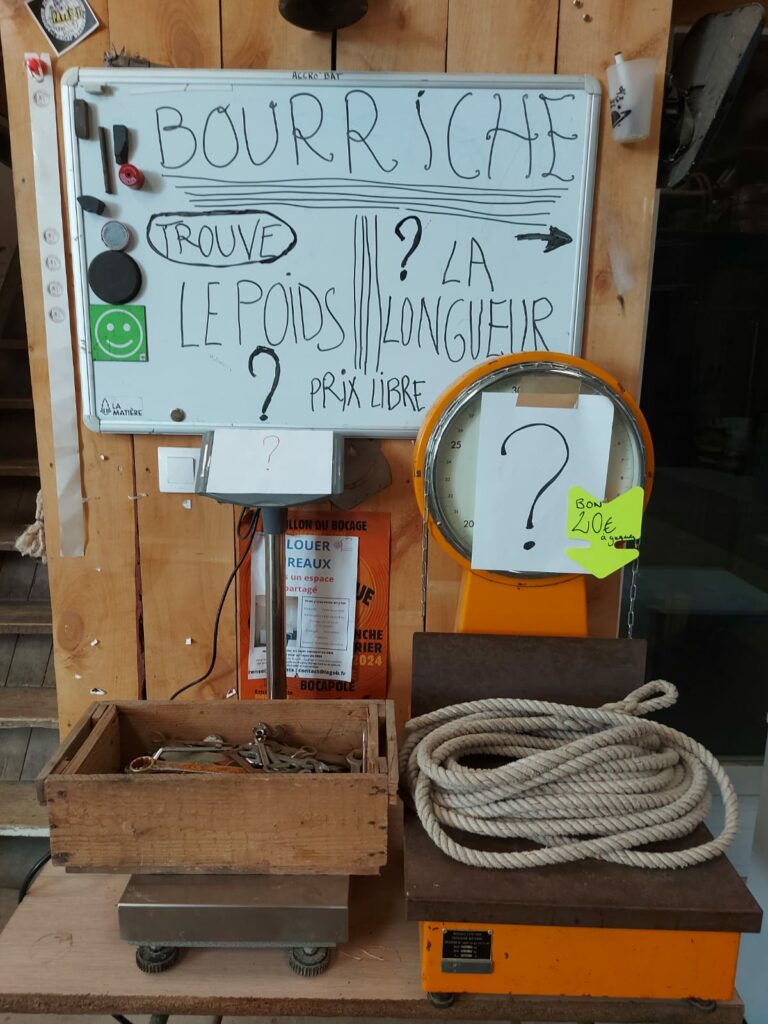 ACCRO'BAT
BOURRICHE
TROUVE
LE POIDS
?
? LA
LONGUEUR
PRIX LIBRE
LA
MATIÈRE
?
30
25
20
?
BON
20€
à gagner
LLON DU BOCAGE
LOUER
REAUX
un espace
partagé
2024
BOCAPOLE